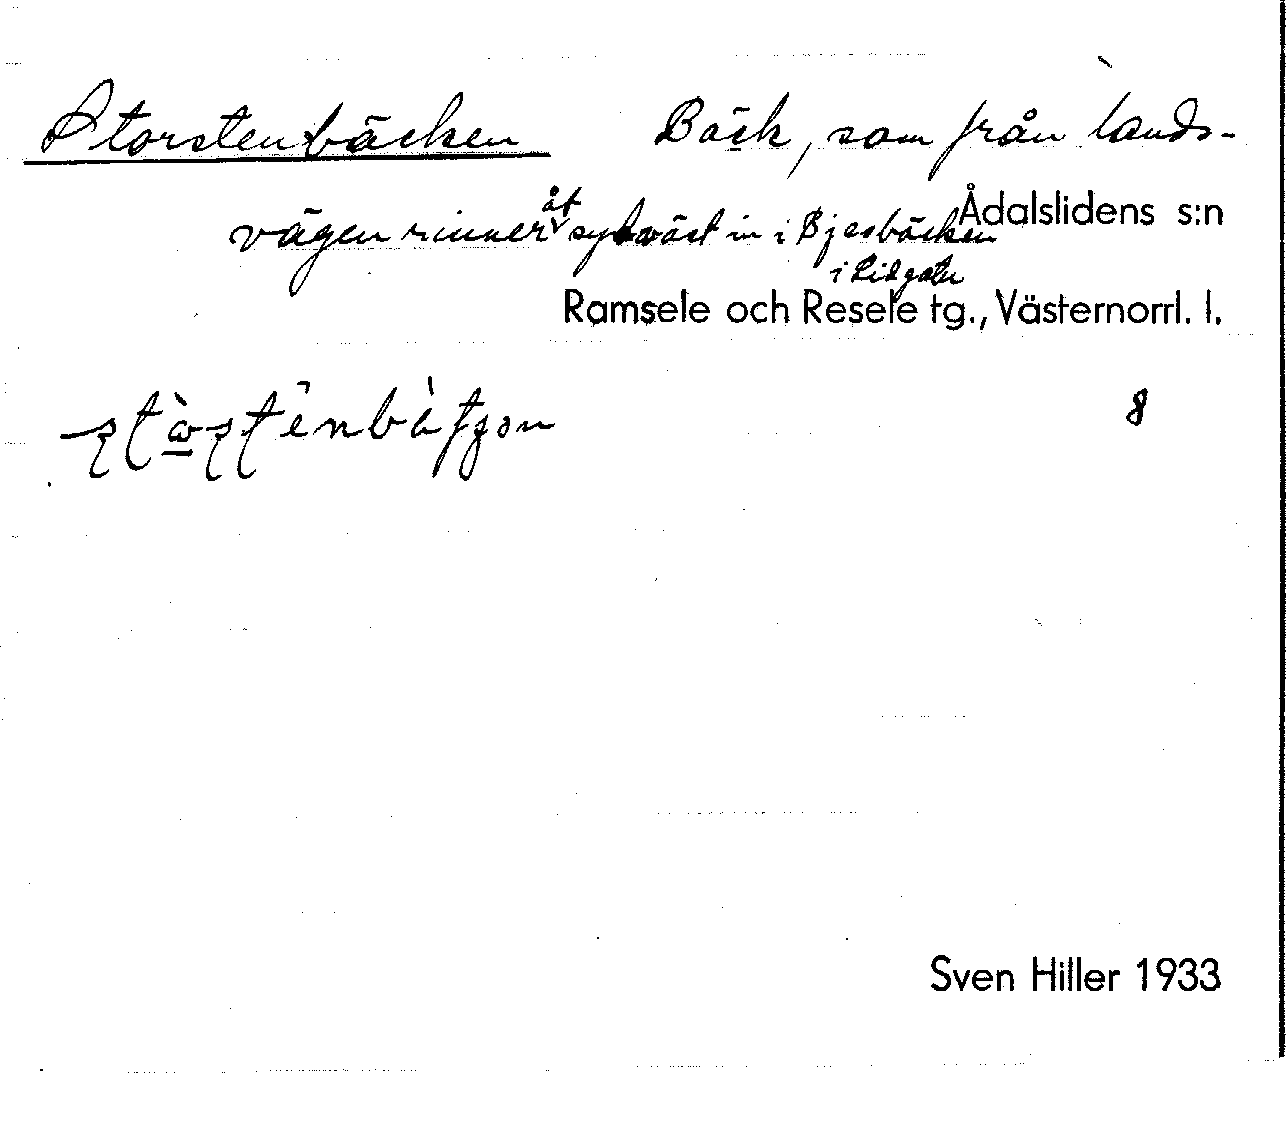 Storstenbäcken Bäck, som från lands-
vägen rinner åt sydväst in i Bjesbäcken
Ådalslidens s:n
i Lidgatu
Ramsele och Resele tg., Västernorrl. l.
8
Sven Hiller 1933